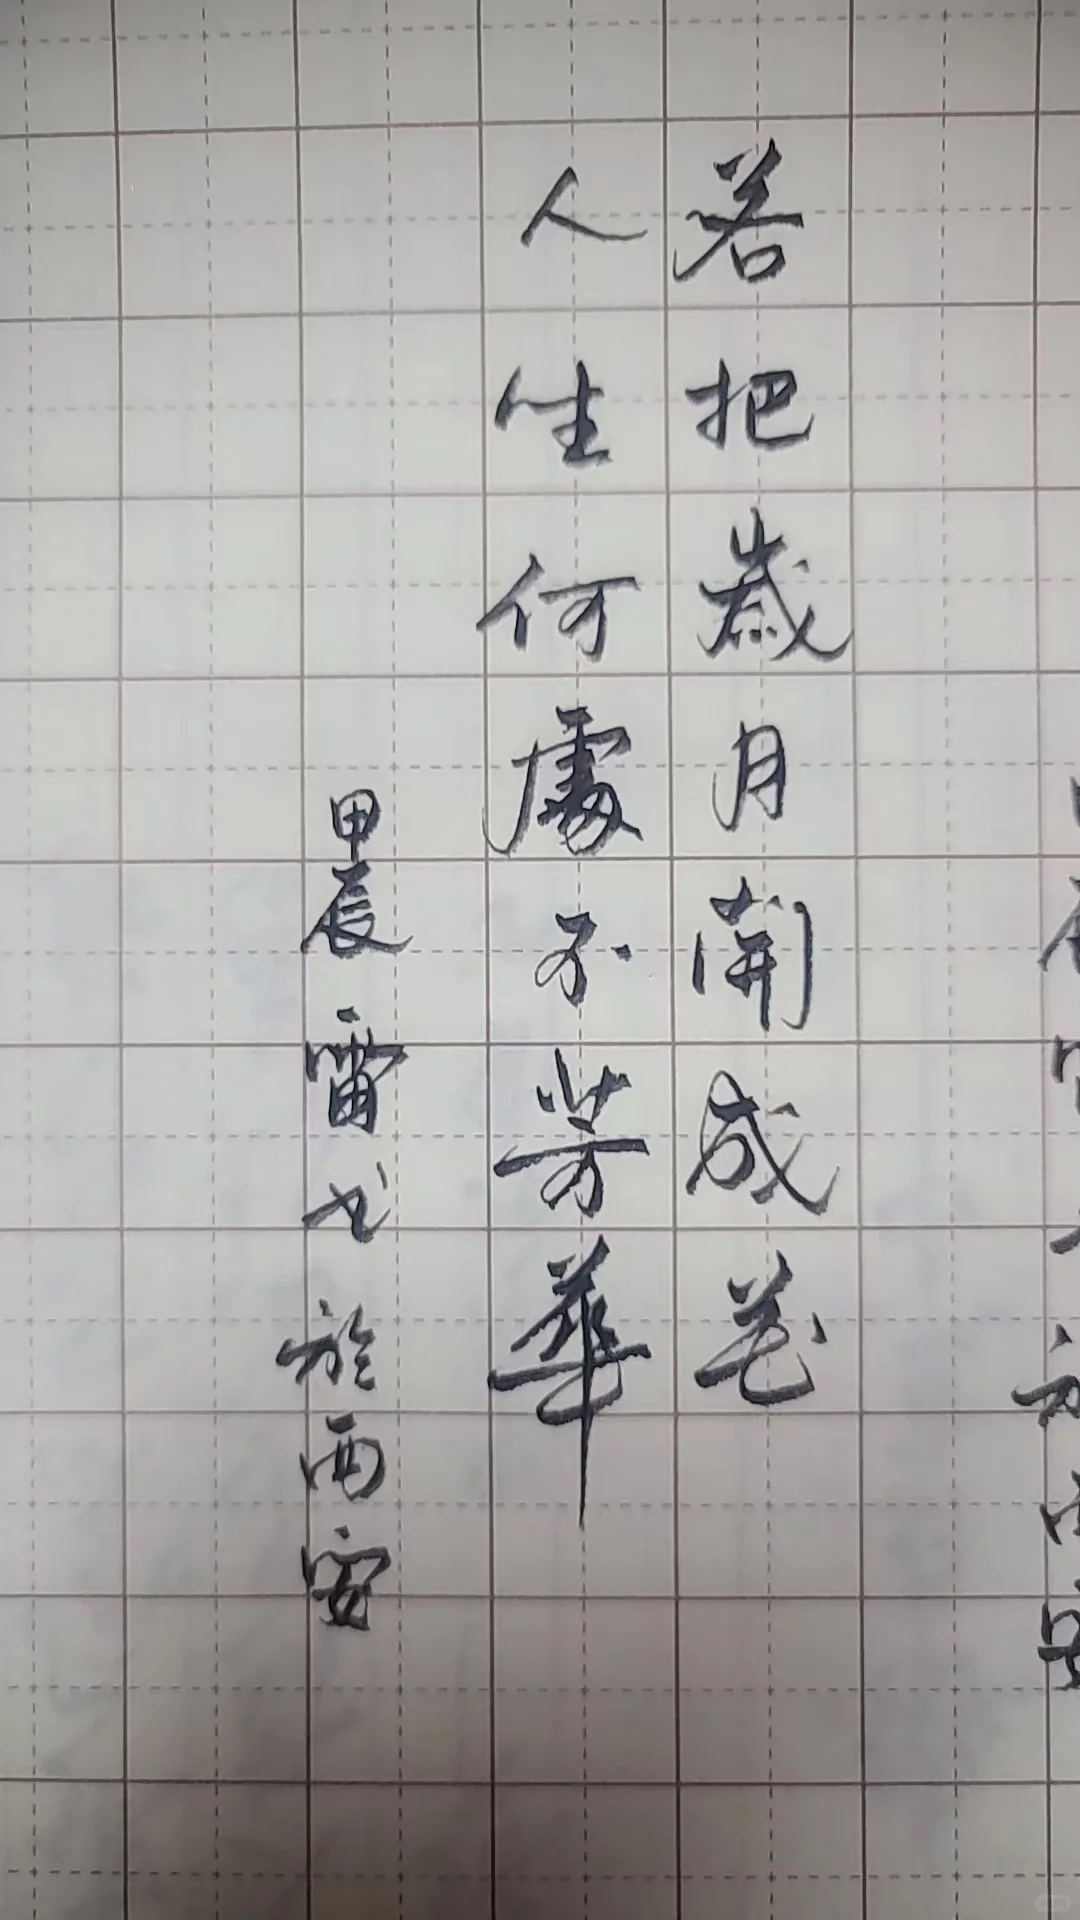 若把歲月開成花
人生何處不芳華
甲辰雷书於西安